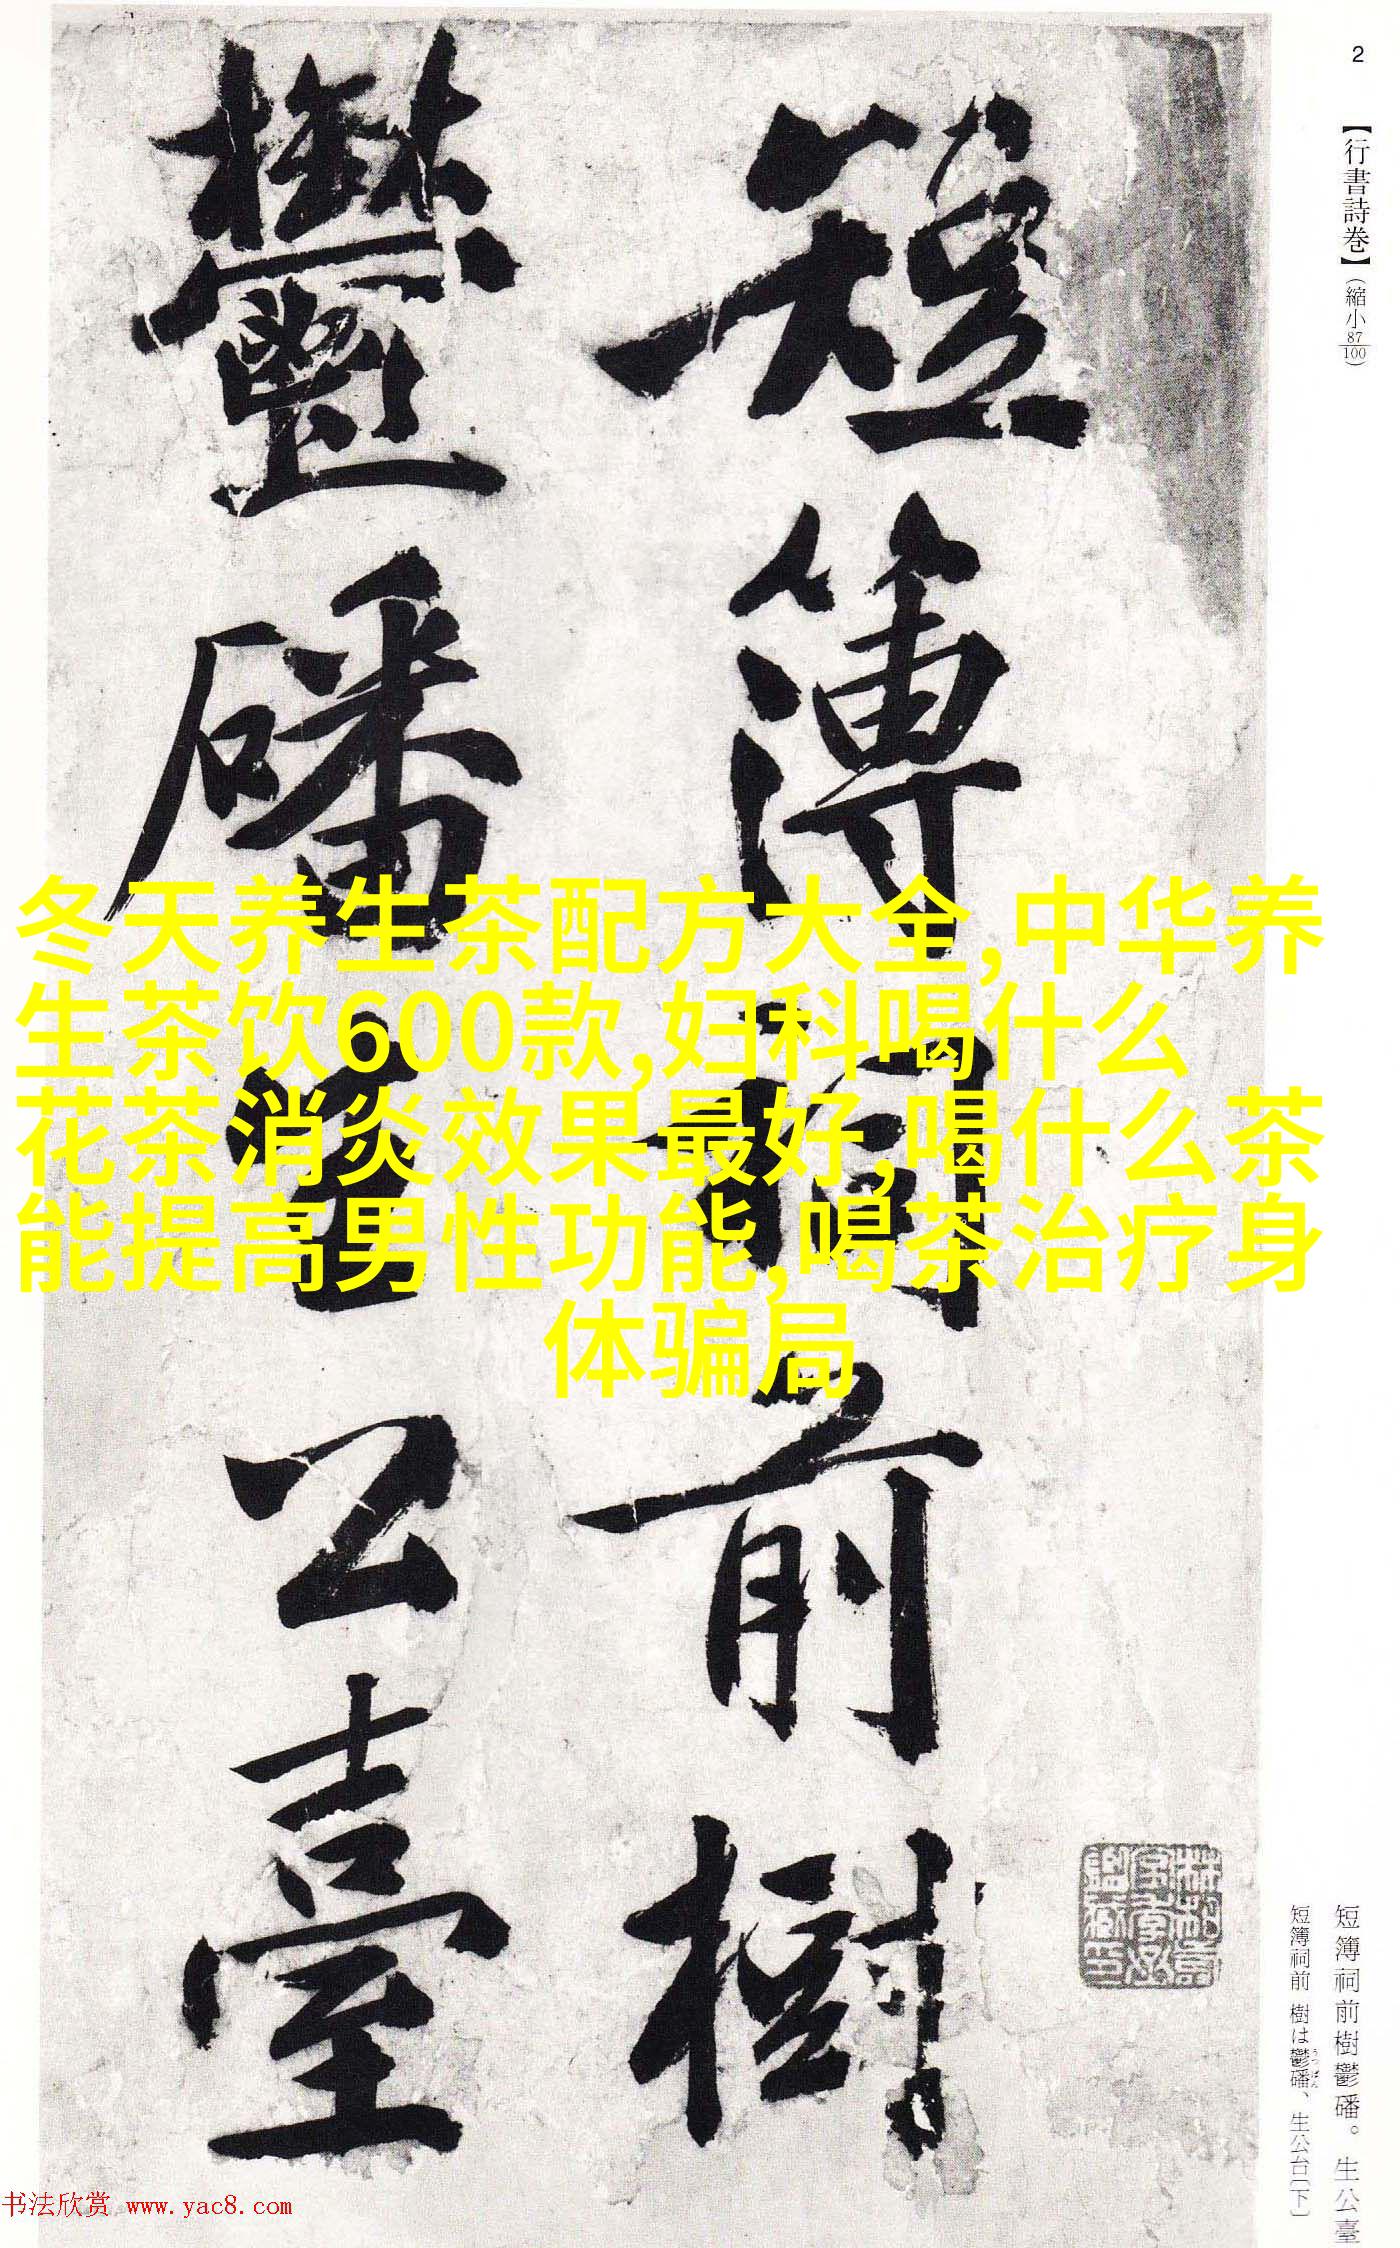 2
【行書詩巻】(縮小87/100)
短簿祠前樹
鬱磻生公臺
冬天养生茶配方大全,中华养
生茶饮600款,妇科喝什么
花茶消炎效果最好,喝什么茶
能提高男性功能,喝茶治疗身
体骗局
短簿祠前樹鬱磻。生公臺
短簿祠前 樹は鬱磻、生公台〔下〕
书法欣赏 www.yac8.com